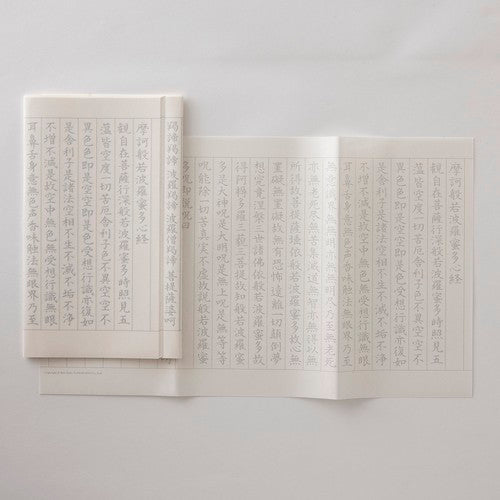 羯諦羯諦 波羅羯諦 波羅僧羯諦 菩提薩婆訶
摩訶般若波羅蜜多心経
観自在菩薩行深般若波羅蜜多時照見五
蘊皆空度一切苦厄舎利子色不異空空不
異色色即是空空即是色受想行識亦復如
是舎利子是諸法空相不生不滅不垢不浄
不増不減是故空中無色無受想行識無眼
耳鼻舌身意無色声香味触法無眼界乃至
摩訶般若波羅蜜多心経
観自在菩薩行深般若波羅蜜多時照見五
蘊皆空度一切苦厄舎利子色不異空空不
異色色即是空空即是色受想行識亦復如
是舎利子是諸法空相不生不滅不垢不浄
不増不減是故空中無色無受想行識無眼
耳鼻舌身意無色声香味触法無眼界乃至
無意識界無無明亦無無明尽乃至無老死
亦無老死尽無苦集滅道無智亦無得以無
所得故菩提薩埵依般若波羅蜜多故心無
罣礙無罣礙故無有恐怖遠離一切顛倒夢
想究竟涅槃三世諸仏依般若波羅蜜多故
得阿耨多羅三藐三菩提故知般若波羅蜜
多是大神呪是大明呪是無上呪是無等等
呪能除一切苦真実不虚故説般若波羅蜜
多呪即説呪曰